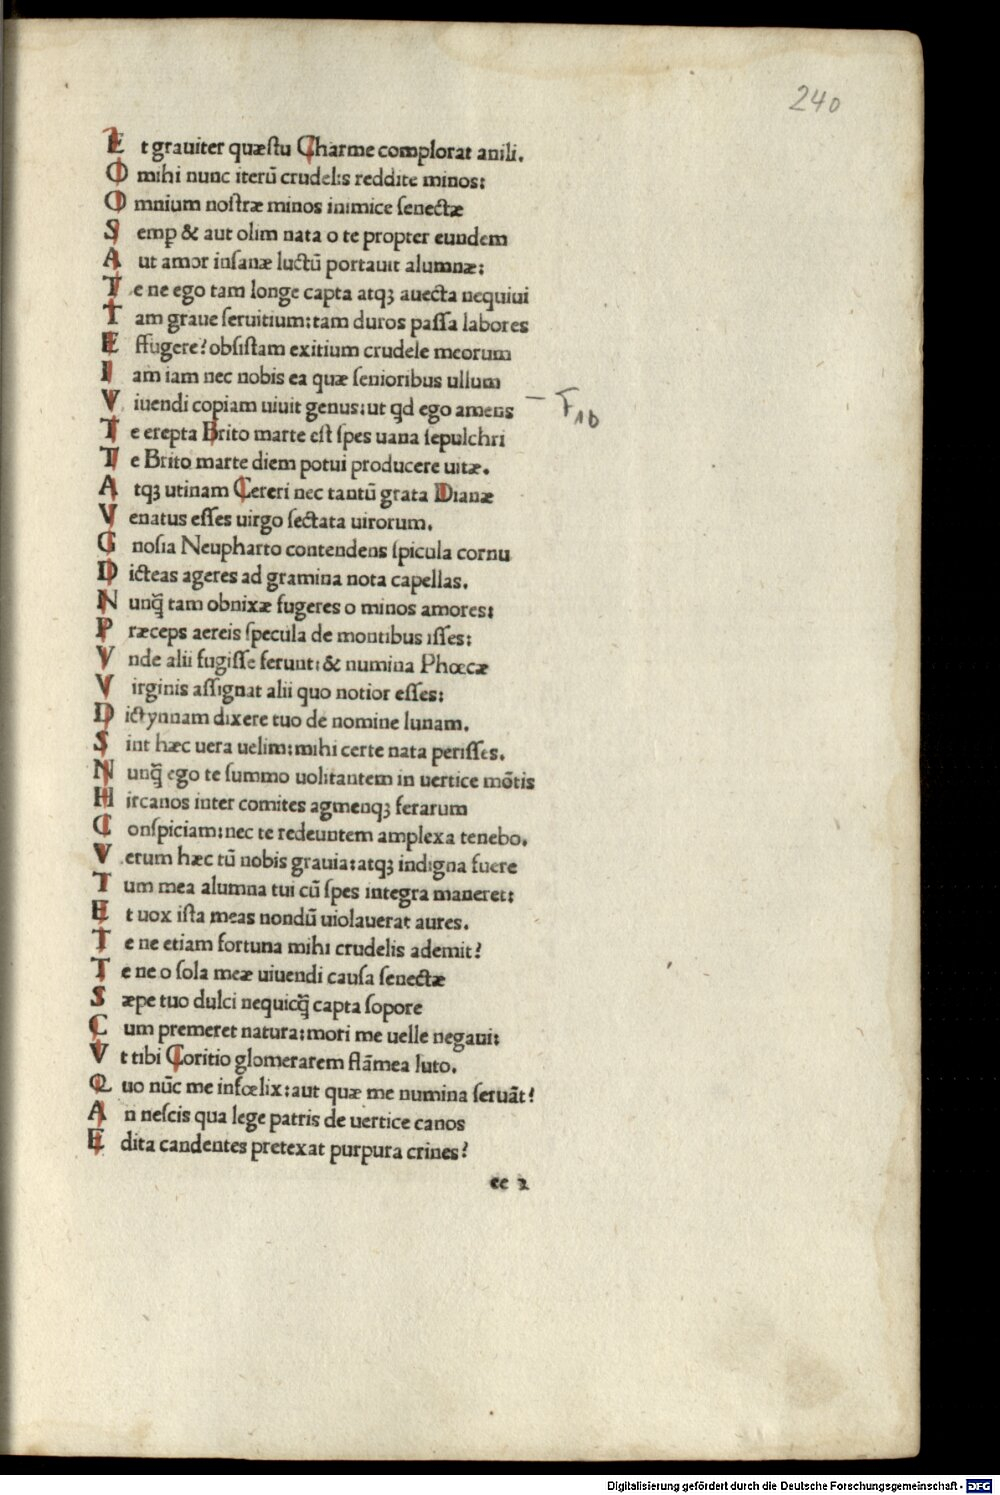 240
E t grauiter quæstu Charme complorat anili.
O mihi nunc iterū crudelis reddite minos:
O mnium nostræ minos inimice senectæ
S emp̱ & aut olim nata o te propter eundem
A ut amor insanæ luctū portauit alumnæ:
T e ne ego tam longe capta atqꝫ auecta nequiui
T am graue seruitium: tam duros passa labores
E ffugere? obsistam exitium crudele meorum
I am iam nec nobis ea quæ senioribus ullum
V iuendi copiam uiuit genus: ut qd ego amens
T e erepta Brito marte est spes uana sepulchri
T e Brito marte diem potui producere uitæ.
A tqꝫ utinam Cereri nec tantū grata Dianæ
V enatus esses uirgo sectata uirorum.
G nosia Neupharto contendens spicula cornu
D icteas ageres ad gramina nota capellas.
N unq̄ tam obnixæ fugeres o minos amores:
P ræceps aereis specula de montibus isses:
V nde alii fugisse ferunt: & numina Phœcæ
V irginis assignat alii quo notior esses:
D ictynnam dixere tuo de nomine lunam.
S int hæc uera uelim: mihi certe nata perisses.
N unq̄ ego te summo uolitantem in uertice mōtis
H ircanos inter comites agmenqꝫ ferarum
C onspiciam: nec te redeuntem amplexa tenebo.
V erum hæc tū nobis grauia: atqꝫ indigna fuere
T um mea alumna tui cū spes integra maneret:
E t uox ista meas nondū uiolauerat aures.
T e ne etiam fortuna mihi crudelis ademit?
T e ne o sola meæ uiuendi causa senectæ
S æpe tuo dulci nequicq̄ capta sopore
C um premeret natura: mori me uelle negaui:
V t tibi Coritio glomerarem flāmea luto.
Q uo nūc me infœlix: aut quæ me numina seruāt?
A n nescis qua lege patris de uertice canos
E dita candentes pretexat purpura crines?
ee 2
Digitalisierung gefördert durch die Deutsche Forschungsgemeinschaft - DFG